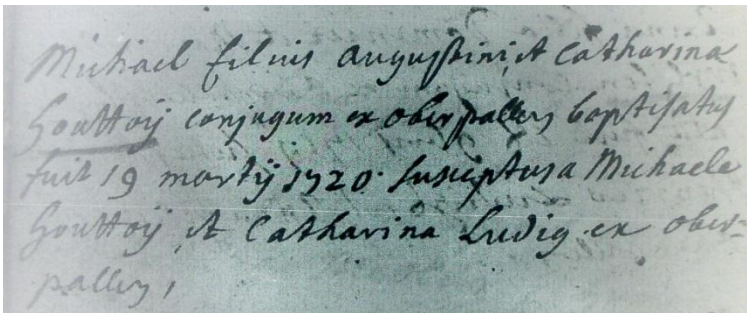 Michael filius Augustini et Catharina
Houttoÿ conjugum ex oberpallen baptisatus
fuit 19 martÿ 1720. susceptus a Michaele
Houttoÿ et Catharina Ludig ex ober-
pallen,